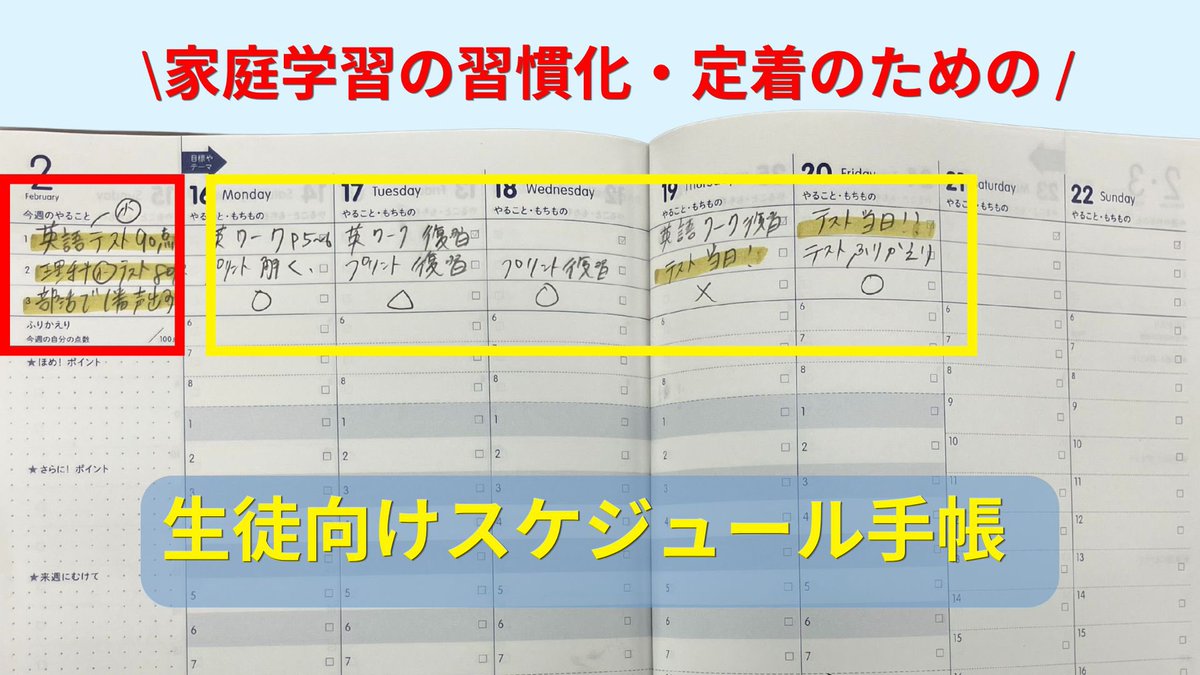 \家庭学習の習慣化・定着のための/
2
February
目標や
テーマ
16 Monday
17 Tuesday
18 Wednesday
19
20 Friday
21 Saturday
22 Sunday
やること・もちもの
やること・もちもの
やること・もちもの
やること・もちもの
やること・もちもの
やること・もちもの
やること・もちもの
今週のやること
小
1 英語テスト90点
2 理科小テスト
3 部活で1番声出す
英ワークP5~6
プリント解く、
○
英ワーク 復習
プリント 復習
△
プリント復習
○
英語ワーク復習
テスト当日!
×
テスト当日!!
テストふりかえり
○
ふりかえり
今週の自分の点数 /100点
★ほめ!ポイント
★さらに!ポイント
★来週にむけて
生徒向けスケジュール手帳